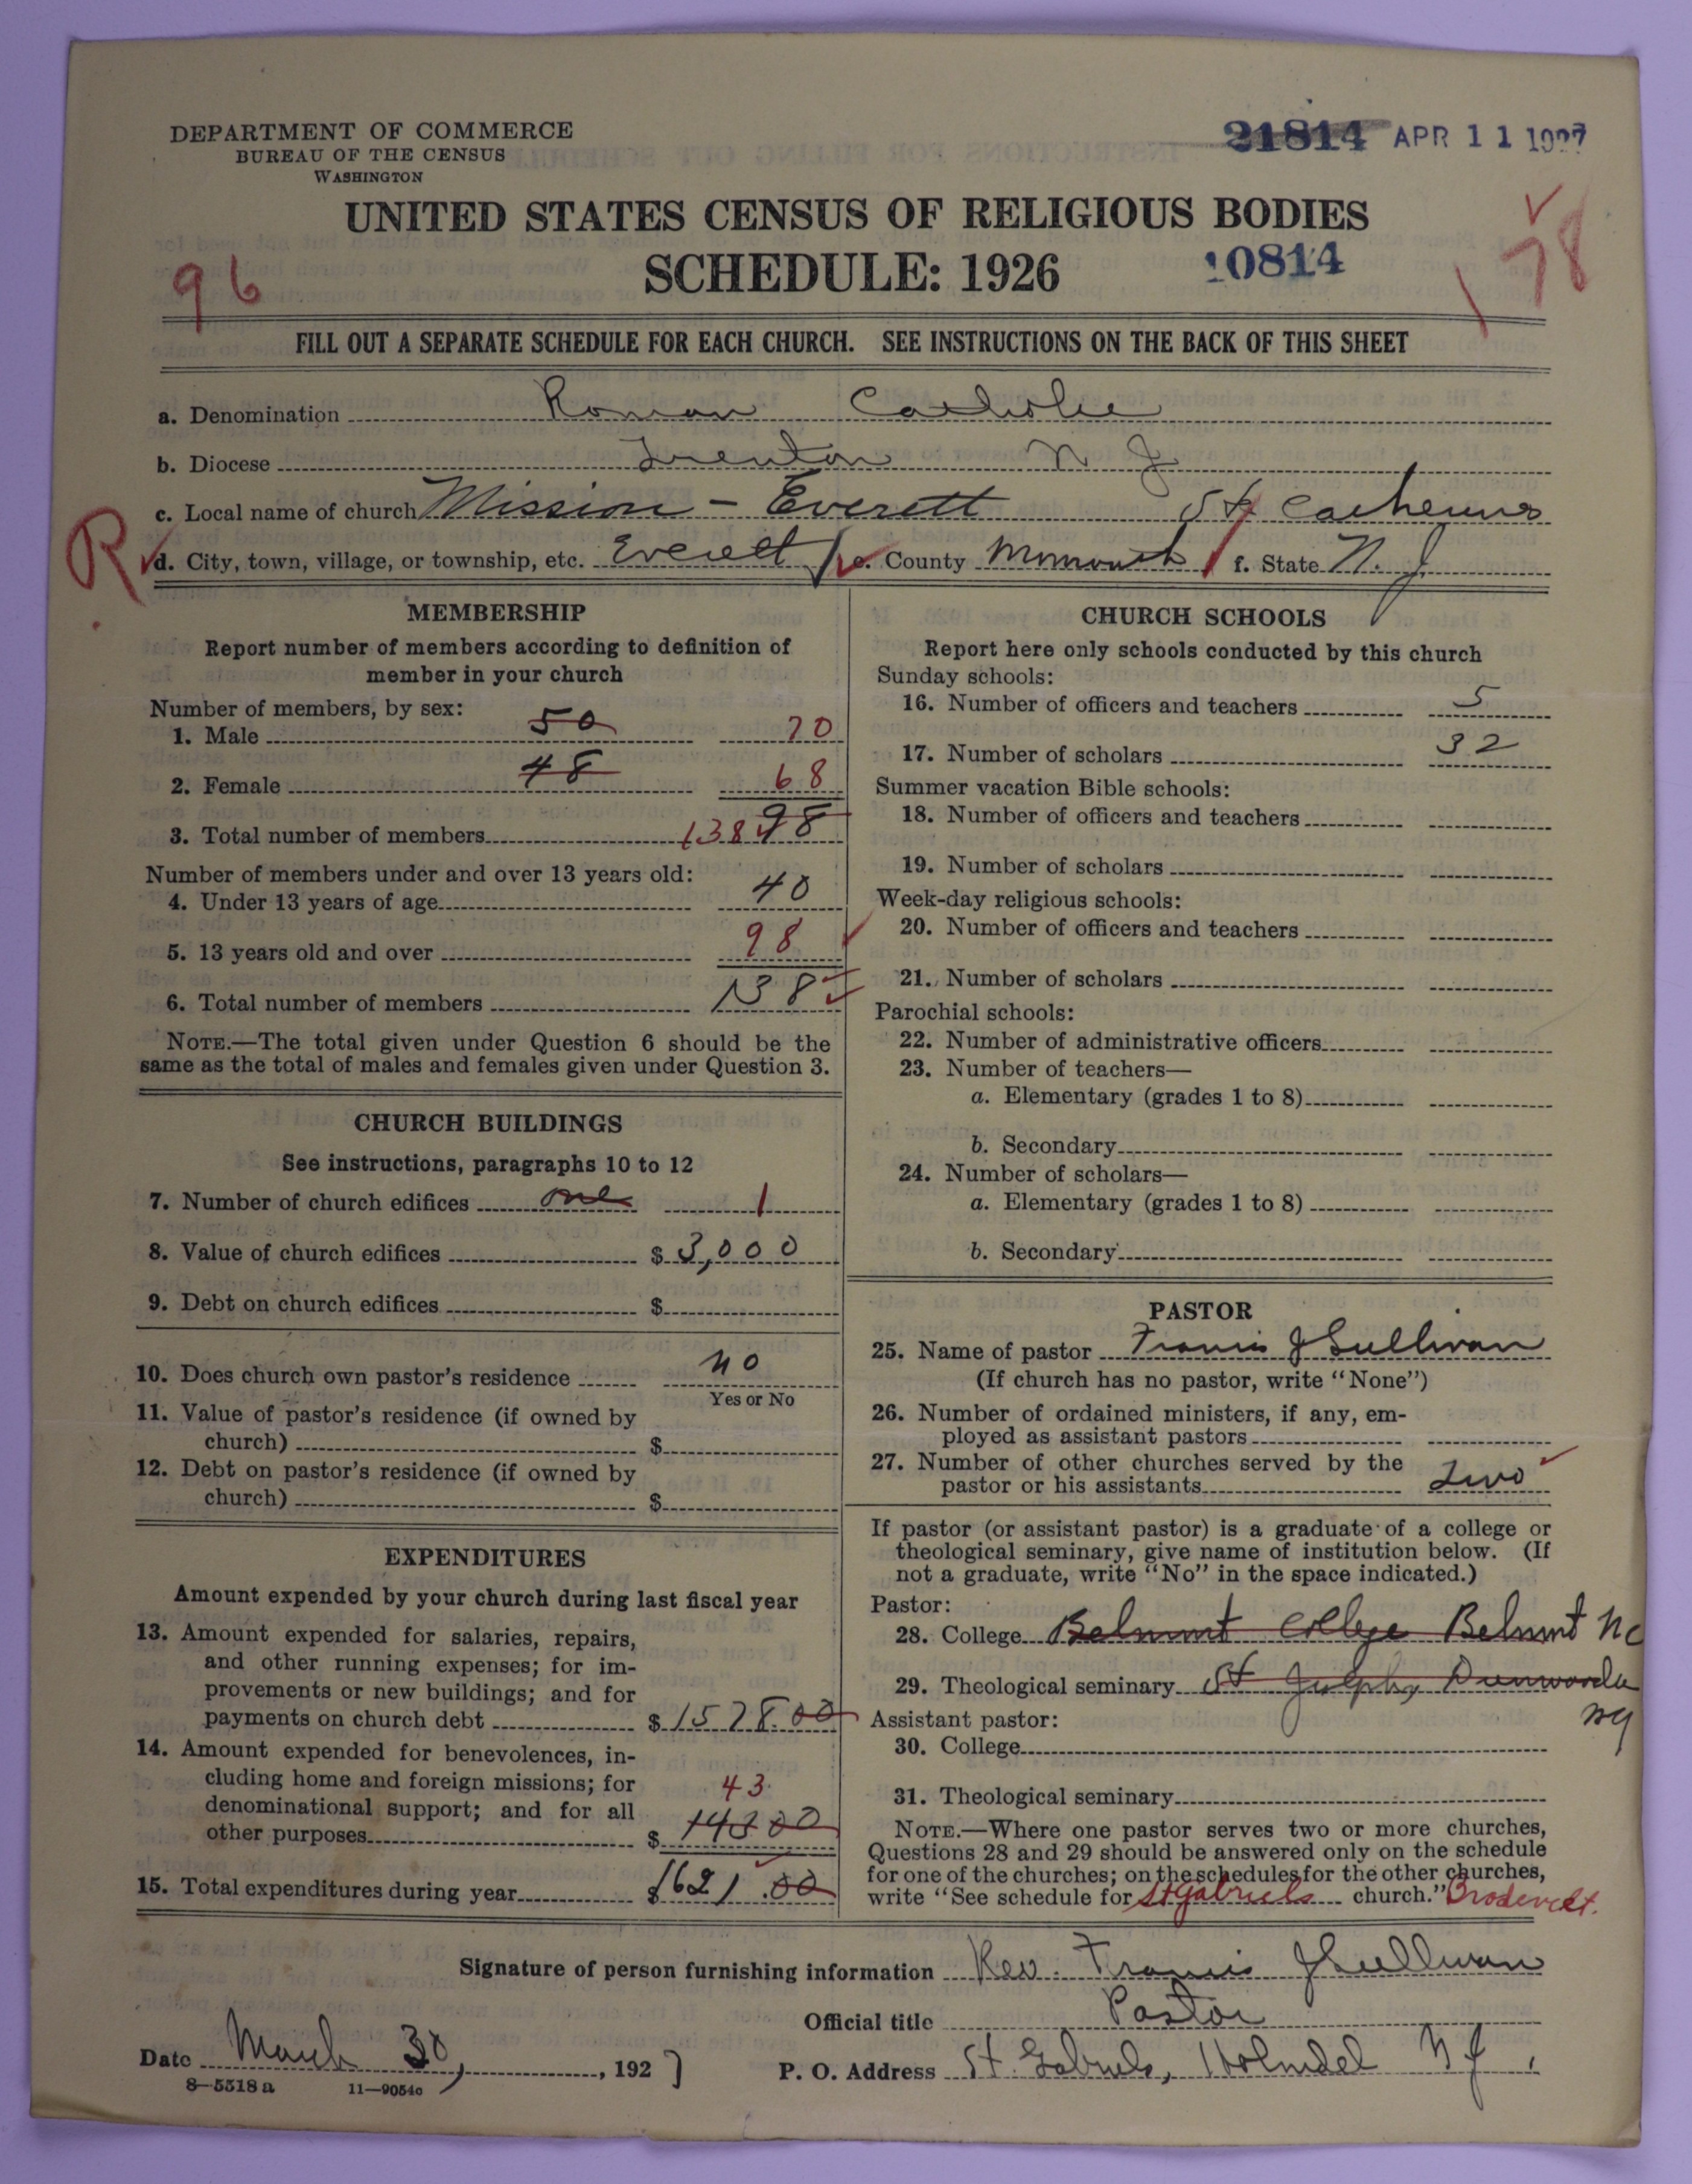 DEPARTMENT OF COMMERCE
BUREAU OF THE CENSUS
WASHINGTON
21814 APR 11 1927
UNITED STATES CENSUS OF RELIGIOUS BODIES
SCHEDULE: 1926
10814
96
78
FILL OUT A SEPARATE SCHEDULE FOR EACH CHURCH. SEE INSTRUCTIONS ON THE BACK OF THIS SHEET
a. Denomination Roman Catholic
b. Diocese Trenton N J
c. Local name of church Mission - Everett St Catherines
R d. City, town, village, or township, etc. Everett e. County Monmouth f. State N. J.
MEMBERSHIP
Report number of members according to definition of
member in your church
Number of members, by sex:
1. Male 50 70
2. Female 48 68
3. Total number of members 138 98
Number of members under and over 13 years old:
4. Under 13 years of age 40
5. 13 years old and over 98
6. Total number of members 138
NOTE.—The total given under Question 6 should be the
same as the total of males and females given under Question 3.
CHURCH BUILDINGS
See instructions, paragraphs 10 to 12
7. Number of church edifices one 1
8. Value of church edifices $ 3,000
9. Debt on church edifices $
10. Does church own pastor's residence no
Yes or No
11. Value of pastor's residence (if owned by
church) $
12. Debt on pastor's residence (if owned by
church) $
EXPENDITURES
Amount expended by your church during last fiscal year
13. Amount expended for salaries, repairs,
and other running expenses; for im-
provements or new buildings; and for
payments on church debt $ 1578.00
14. Amount expended for benevolences, in-
cluding home and foreign missions; for
denominational support; and for all
43
other purposes $ 143 00
15. Total expenditures during year $ 1621.00
CHURCH SCHOOLS
Report here only schools conducted by this church
Sunday schools:
16. Number of officers and teachers 5
17. Number of scholars 32
Summer vacation Bible schools:
18. Number of officers and teachers
19. Number of scholars
Week-day religious schools:
20. Number of officers and teachers
21. Number of scholars
Parochial schools:
22. Number of administrative officers
23. Number of teachers—
a. Elementary (grades 1 to 8)
b. Secondary
24. Number of scholars—
a. Elementary (grades 1 to 8)
b. Secondary
PASTOR
25. Name of pastor Francis J Sullivan
(If church has no pastor, write "None")
26. Number of ordained ministers, if any, em-
ployed as assistant pastors
27. Number of other churches served by the
pastor or his assistants Two
If pastor (or assistant pastor) is a graduate of a college or
theological seminary, give name of institution below. (If
not a graduate, write "No" in the space indicated.)
Pastor:
28. College Belmont College Belmont NC
29. Theological seminary St Josephs Dunwoodie
NY
Assistant pastor:
30. College
31. Theological seminary
NOTE.—Where one pastor serves two or more churches,
Questions 28 and 29 should be answered only on the schedule
for one of the churches; on the schedules for the other churches,
write "See schedule for St Gabriels church."
Signature of person furnishing information Rev. Francis J Sullivan
Official title Pastor
Date March 30, 1927
P. O. Address St. Gabriels, Holmdel N J.
8—5518 a 11—9054c